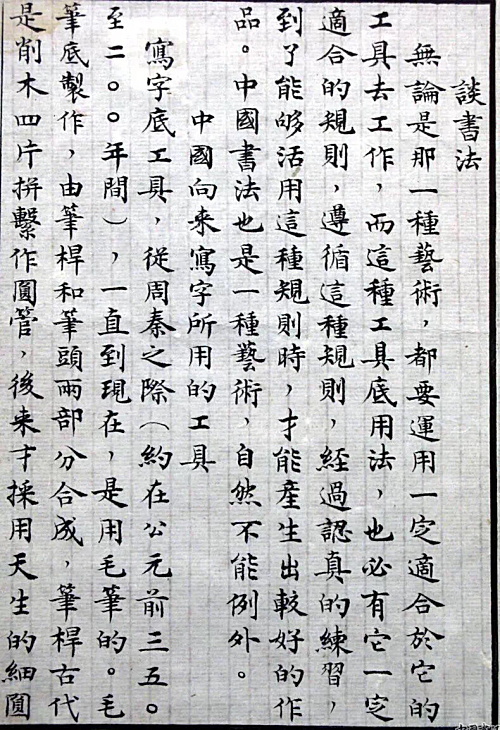 談書法
無論是那一種藝術，都要運用一定適合於它的
工具去工作，而這種工具底用法，也必有它一定
適合的規則，遵循這種規則，經過認真的練習，
到了能够活用這種規則時，才能產生出較好的作
品。中國書法也是一種藝術，自然不能例外。
中國向来寫字所用的工具
寫字底工具，從周秦之際（約在公元前三五。
至二。。年間），一直到現在，是用毛筆的。毛
筆底製作，由筆桿和筆頭兩部分合成，筆桿古代
是削木四片拼繫作圓管，後来才採用天生的細圓